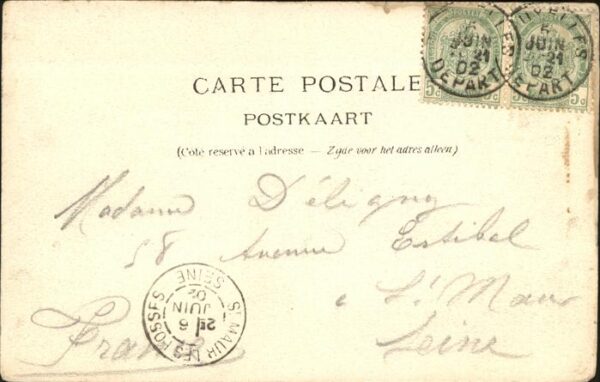 5c 5c
BRUXELLES 5 JUIN 21 02 DEPART
BRUXELLES 5 JUIN 21 02 DEPART
CARTE POSTALE
POSTKAART
(Côté réservé à l'adresse — Zyde voor het adres alleen)
Madame Déligny
58 Avenue Estibal
à St Maur
Seine
France
ST MAUR LES FOSSES SEINE 2E 6 JUIN 02